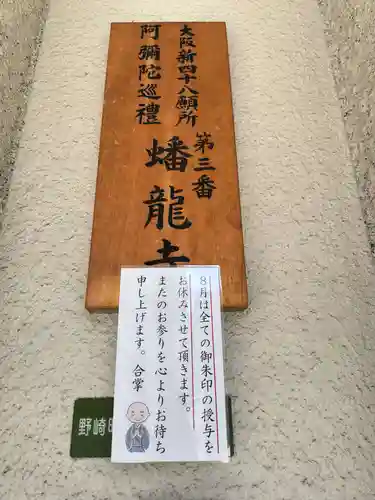 大阪新四十八願所
阿彌陀巡禮
第三番
蟠龍寺
8月は全ての御朱印の授与を
お休みさせて頂きます。
またのお参りを心よりお待ち
申し上げます。 合掌
野崎